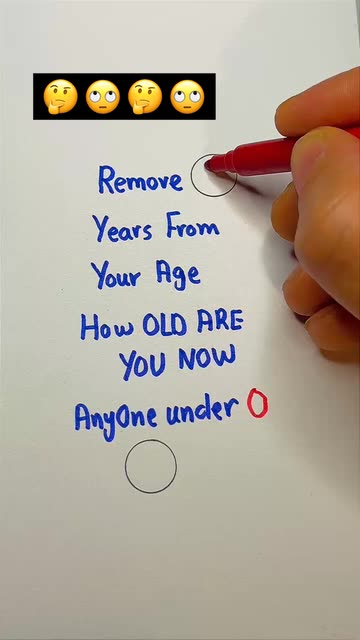 🤔🙄🤔🙄
Remove
Years From
Your Age
How OLD ARE
YOU NOW
AnyOne under 0